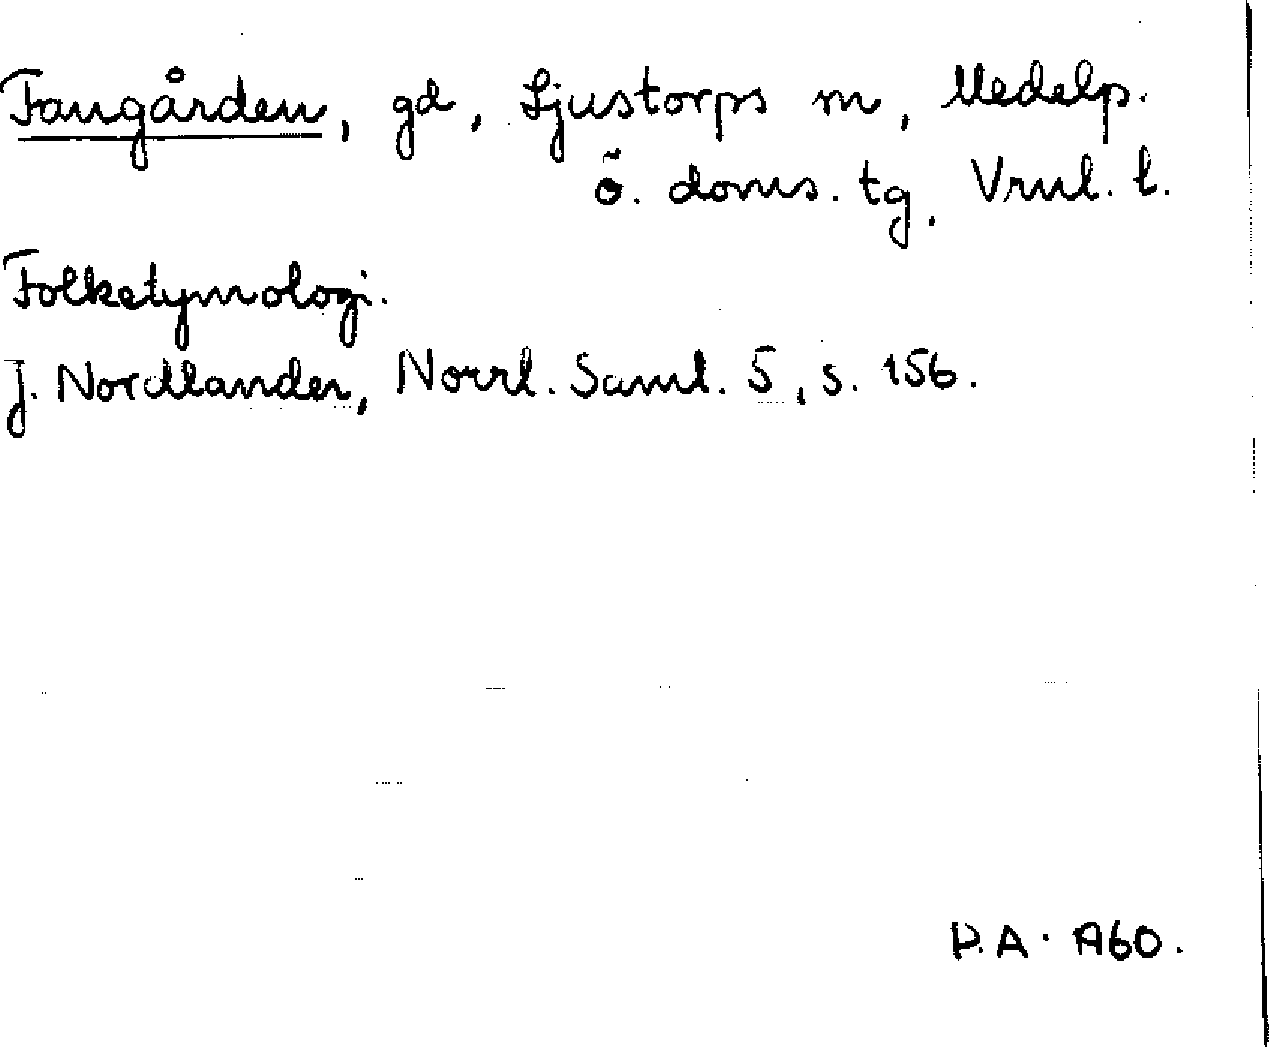 Fangården, gd, Ljustorps sn, Medelp.
ö. doms. tg, Vrnl. l.
Folketymologi.
J. Nordlander, Norrl. Saml. 5, s. 156.
P.A. A60.